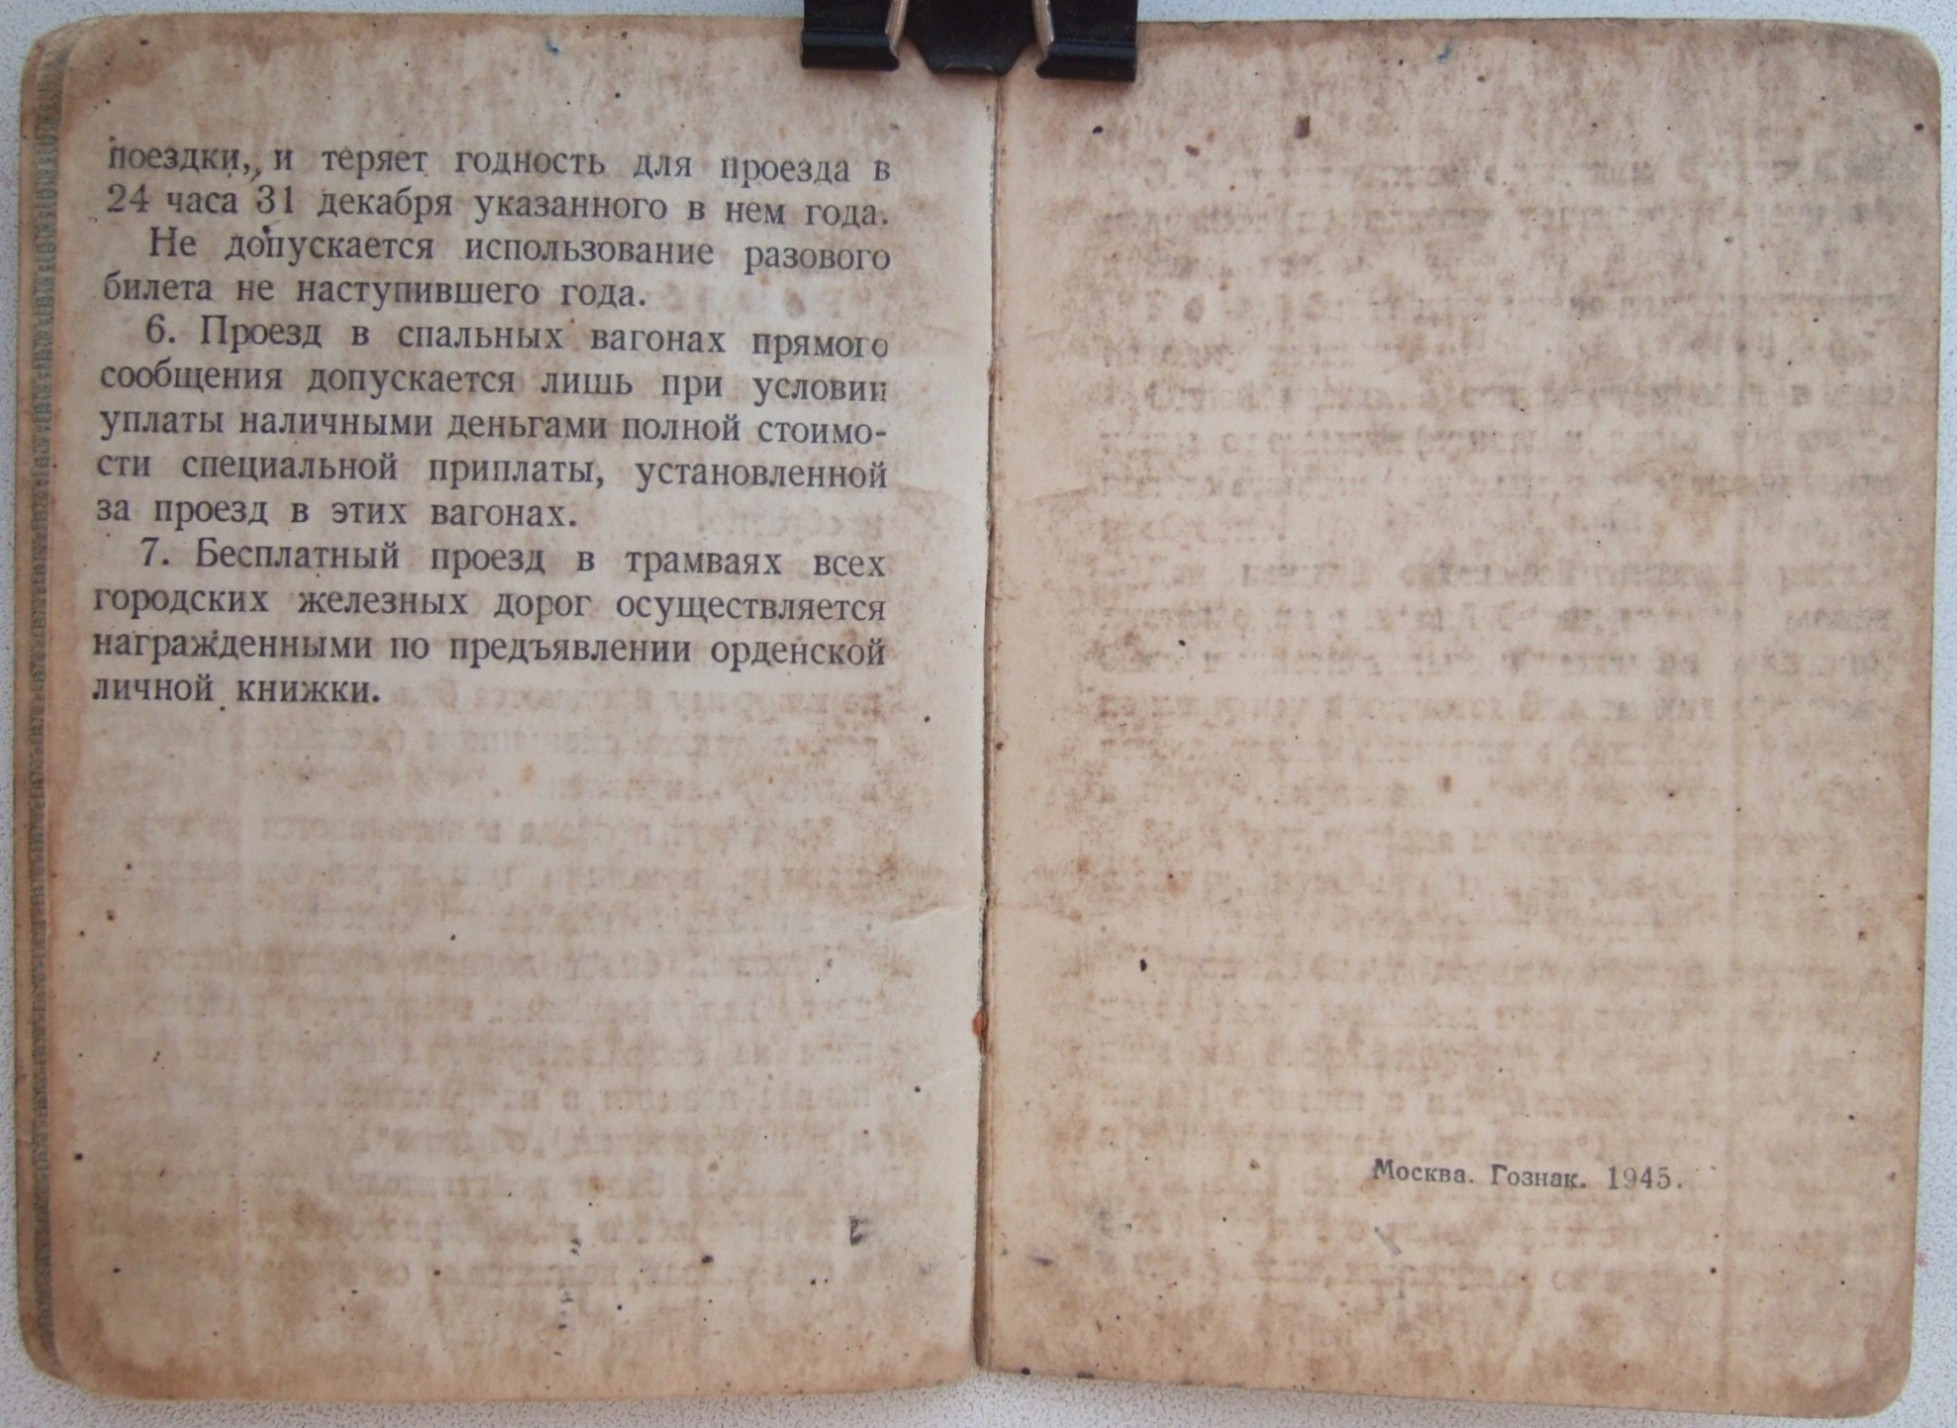 поездки, и теряет годность для проезда в
24 часа 31 декабря указанного в нем года.
Не допускается использование разового
билета не наступившего года.
6. Проезд в спальных вагонах прямого
сообщения допускается лишь при условии
уплаты наличными деньгами полной стоимо-
сти специальной приплаты, установленной
за проезд в этих вагонах.
7. Бесплатный проезд в трамваях всех
городских железных дорог осуществляется
награжденными по предъявлении орденской
личной книжки.
Москва. Гознак. 1945.